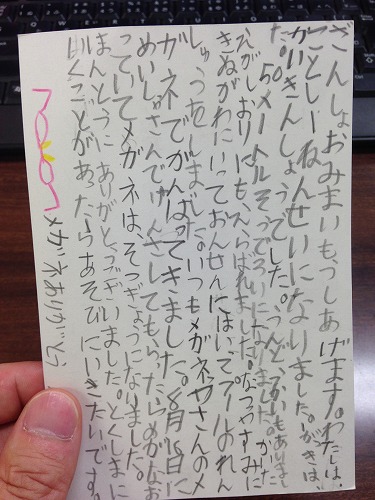 ざんしょおみまいもうしあげます。わたしは、
ことし一ねんせいになりました。一がっきは
かいきんしょうでした。うんどうかいもありまし
た。50メートルそうで3いになりました。かいた
えがしおりにもえらばれました。なつやすみに
きぬがわにいっておんせんにはいってプールのれん
しゅうをしました。いつもメガネやさんのメ
ガネでがんばってきました。8月18日に
めいしゃさんでけんさしてもらったらめがなお
っていてメガネはそつぎょうになりました。
ほんとうにありがとうございました。とくしまに
いくことがあったらあそびにいきたいです。
メガネありがとう